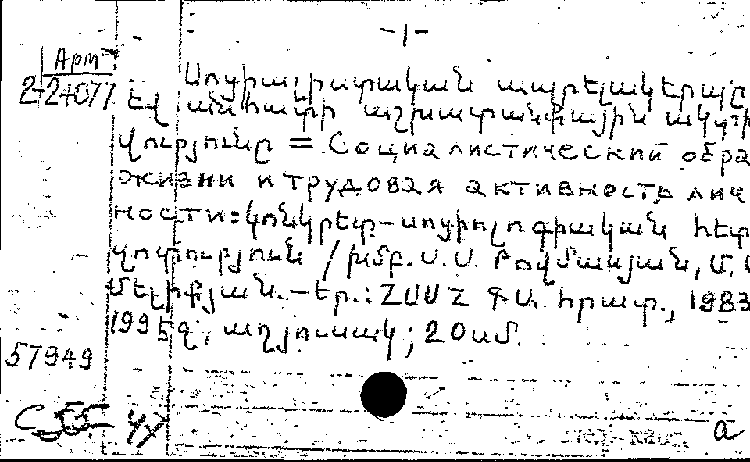 -1-
Арт
2-24077
Սոցիալիստական ապրելակերպը
եվ անհատի աշխատանքային ակտի
վությունը = Социалистический обра
жизни и трудовая активность лич
ности: կոնկրետ-սոցիոլոգիական հետ
զոտություն / խմբ. Ս.Ս. Թովմասյան, Մ.
Մելիքյան.-եր.: ՀՍՍՀ ԳԱ հրատ., 1983
199 էջ, աղյուսակ; 20սմ.
57949
a